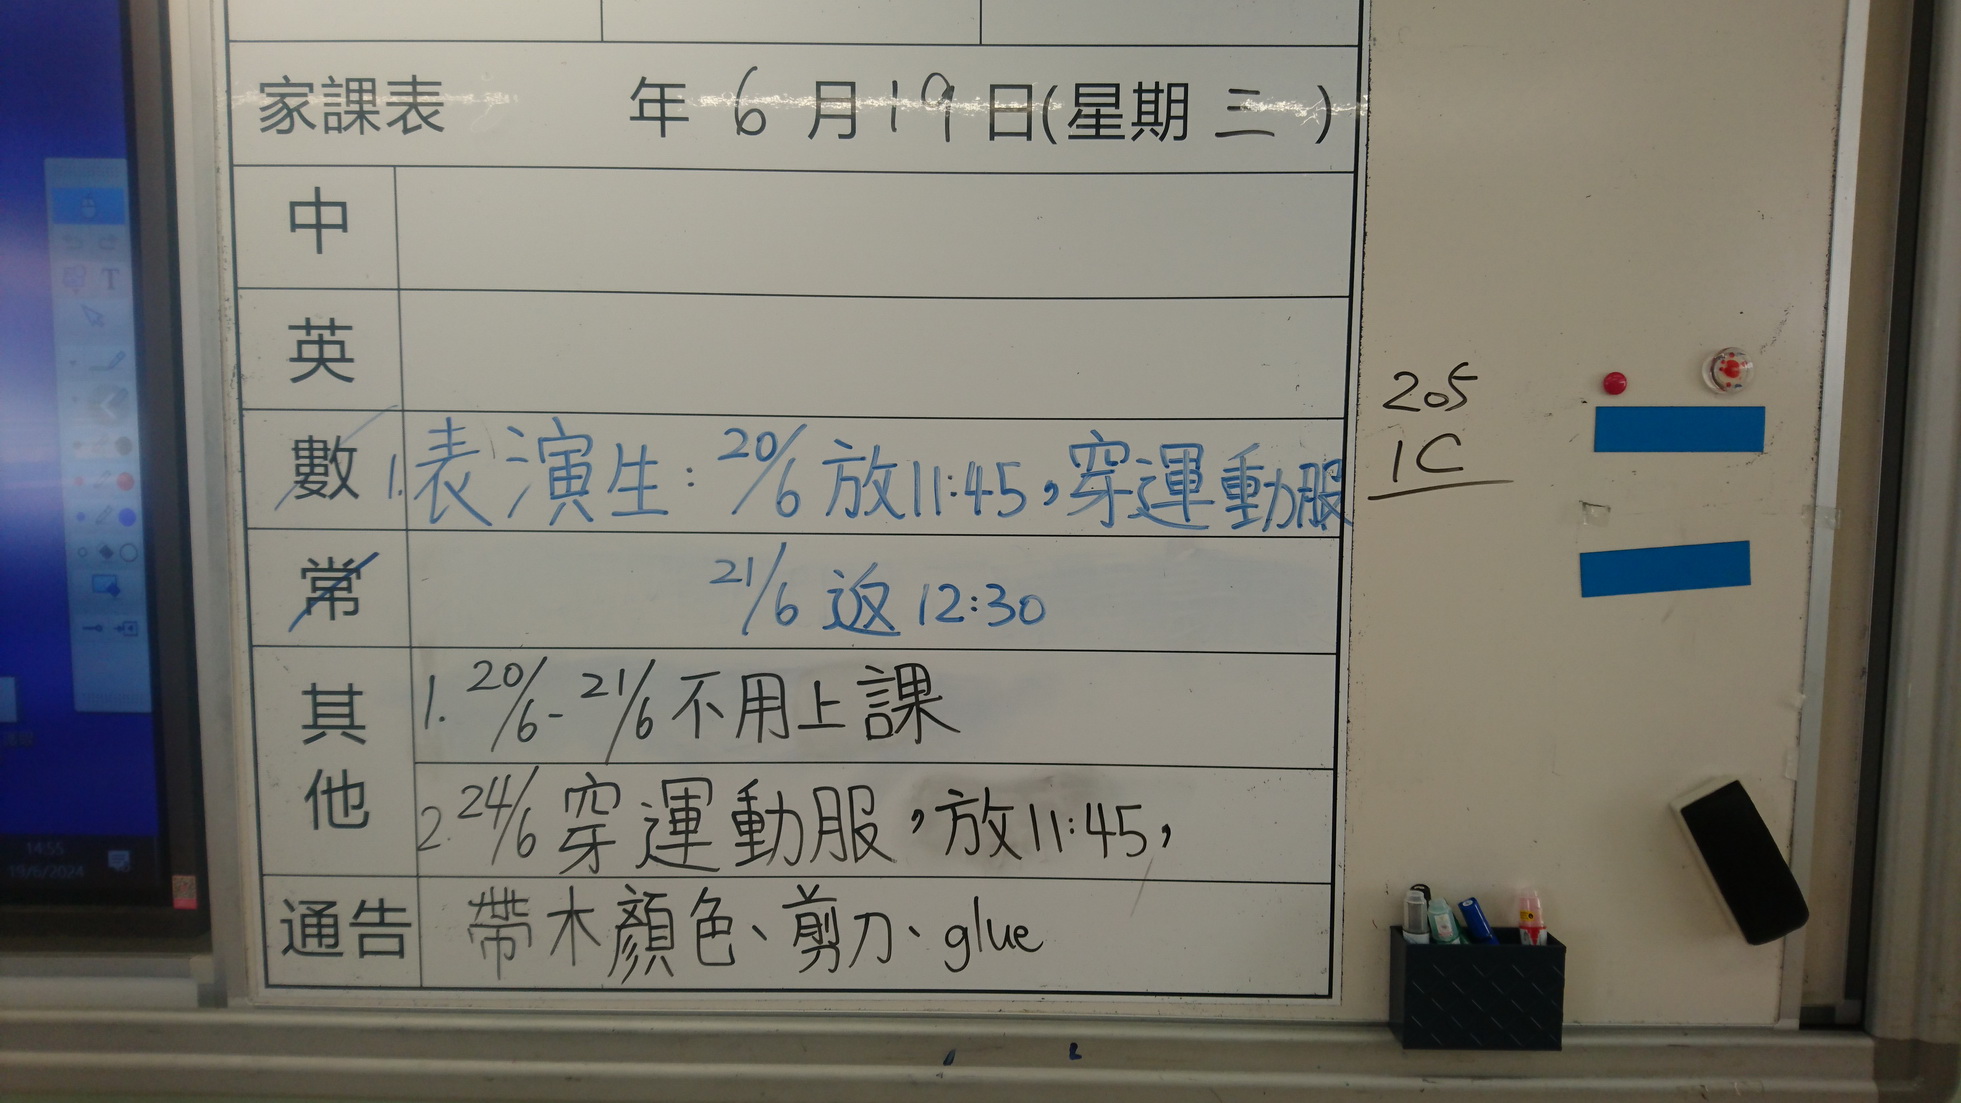 家課表 年 6 月 19 日(星期 三 )
中
英
數 1. 表演生: 20/6 放11:45,穿運動服
常 21/6 返 12:30
其他
1. 20/6 - 21/6 不用上課
2. 24/6 穿運動服,放11:45,
通告 帶木顏色、剪刀、glue
205
1C
T
14:55
19/6/2024